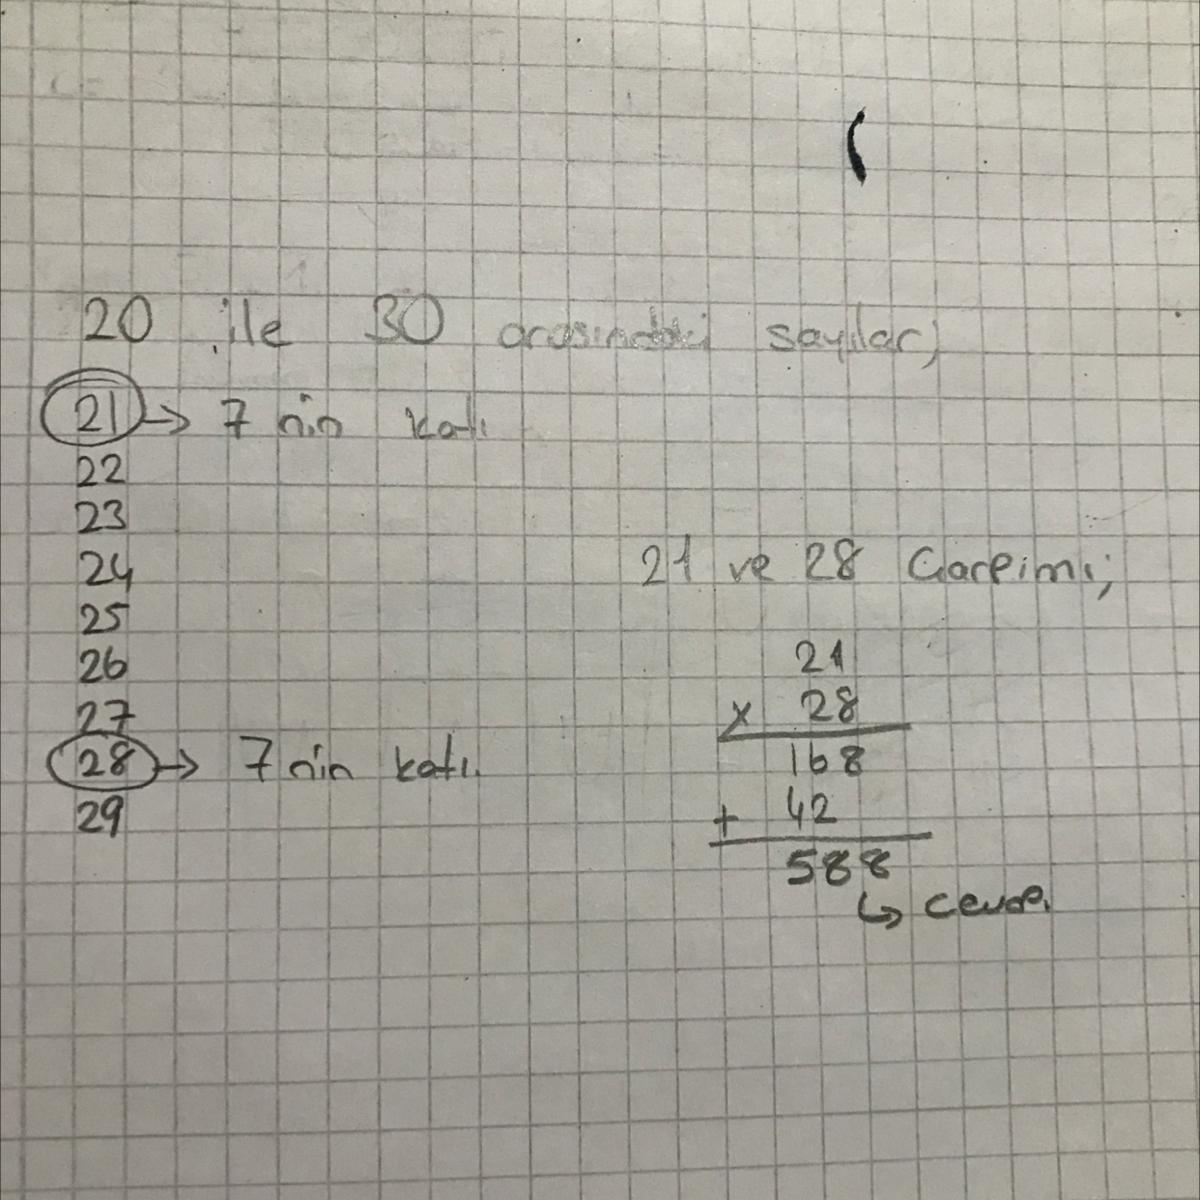 20 ile 30 arasındaki sayılar;
21 → 7 nin katı
22
23
24
25
26
27
28 → 7 nin katı.
29
21 ve 28 Çarpımı;
21
x 28
168
+ 42
588
↳ cevap.